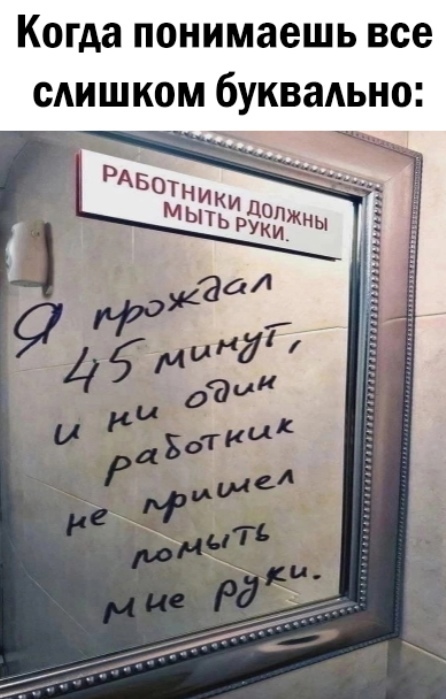 Когда понимаешь все
слишком буквально:
РАБОТНИКИ ДОЛЖНЫ
МЫТЬ РУКИ.
Я прождал
45 минут,
и ни один
работник
не пришел
помыть
мне руки.